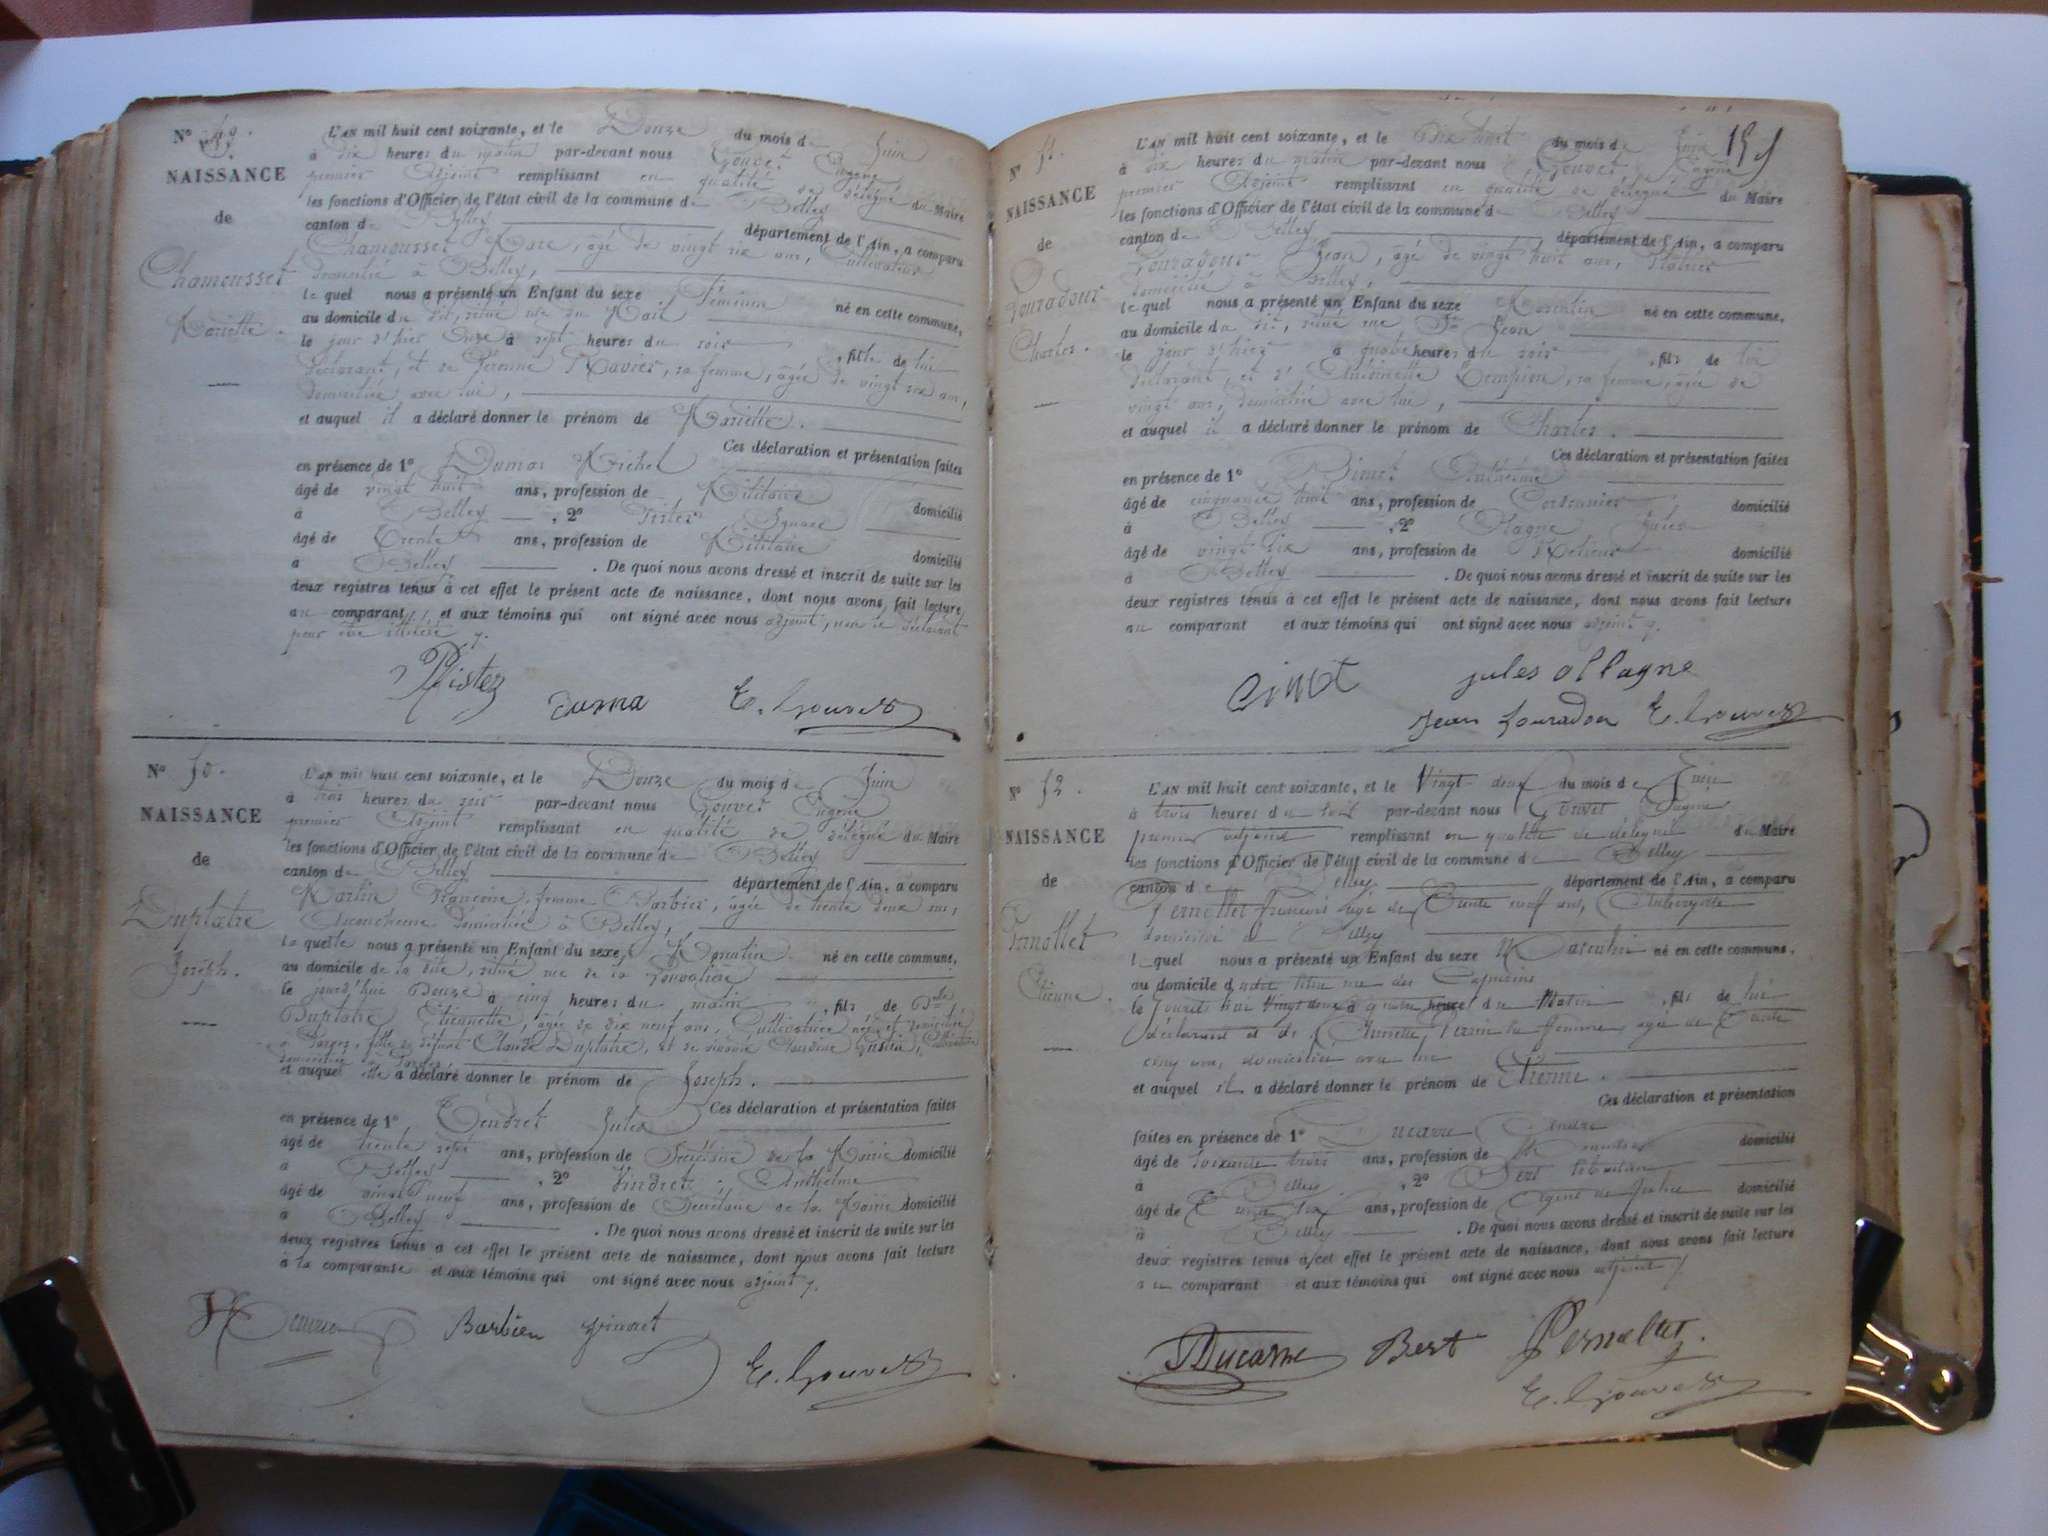 N° 49.
NAISSANCE
de
Chamousset
Mariette.
L'AN mil huit cent soixante, et le Douze du mois de Juin
à dix heures du matin par-devant nous Gouvet Eugène
premier Adjoint remplissant en qualité de délégué du Maire
les fonctions d'Officier de l'état civil de la commune de Belley
canton de Belley département de l'Ain, a comparu
Chamousset Marc, âgé de vingt six ans, Cultivateur
domicilié à Belley,
le quel nous a présenté un Enfant du sexe Féminin né en cette commune,
au domicile du dit, situé rue du Mail
le jour d'hier Onze à sept heures du soir, fille de lui
déclarant, et de Péronne Ravier, sa femme, âgée de vingt six ans,
domiciliée avec lui,
et auquel il a déclaré donner le prénom de Mariette.
Ces déclaration et présentation faites
en présence de 1° Dumas Michel
âgé de vingt huit ans, profession de Militaire domicilié
à Belley, 2° Pister Ignace
âgé de Trente ans, profession de Militaire domicilié
à Belley. De quoi nous avons dressé et inscrit de suite sur les
deux registres tenus à cet effet le présent acte de naissance, dont nous avons fait lecture
au comparant et aux témoins qui ont signé avec nous adjoint, non le déclarant
pour être illettré
Pister duma E. Gouvet
N° 50.
NAISSANCE
de
Duplatre
Joseph.
L'AN mil huit cent soixante, et le Douze du mois de Juin
à trois heures du soir par-devant nous Gouvet Eugène
premier Adjoint remplissant en qualité de délégué du Maire
les fonctions d'Officier de l'état civil de la commune de Belley
canton de Belley département de l'Ain, a comparu
Martin Françoise, femme Barbier, âgée de trente deux ans,
Accoucheuse domiciliée à Belley,
la quelle nous a présenté un Enfant du sexe Masculin né en cette commune,
au domicile de la dite, situé rue de la
le jourd'hui Douze à cinq heures du matin, fils de Dlle
Duplatre Etiennette, âgée de dix neuf ans, Cultivatrice née et domiciliée
à Parves, fille de défunt Claude Duplatre, et de vivante Claudine Cultivatrice
domiciliée à Parves
et auquel elle a déclaré donner le prénom de Joseph.
Ces déclaration et présentation faites
en présence de 1° Tendret Jules
âgé de trente sept ans, profession de Secrétaire de la Mairie domicilié
à Belley, 2° Vindret Anthelme
âgé de vingt neuf ans, profession de Secrétaire de la Mairie domicilié
à Belley. De quoi nous avons dressé et inscrit de suite sur les
deux registres tenus à cet effet le présent acte de naissance, dont nous avons fait lecture
à la comparante et aux témoins qui ont signé avec nous adjoint
Barbier E. Gouvet
N° 51.
NAISSANCE
de
Louradour
Charles.
L'AN mil huit cent soixante, et le Dix huit du mois de Juin
à dix heures du matin par-devant nous Gouvet Eugène
premier Adjoint remplissant en qualité de délégué du Maire
les fonctions d'Officier de l'état civil de la commune de Belley
canton de Belley département de l'Ain, a comparu
Louradour Jean, âgé de vingt huit ans, Plâtrier
domicilié à Belley,
le quel nous a présenté un Enfant du sexe Masculin né en cette commune,
au domicile du dit, situé rue St Jean
le jour d'hier à quatre heures du soir, fils de lui
déclarant, et d'Antoinette Compion, sa femme, âgée de
vingt ans, domiciliée avec lui,
et auquel il a déclaré donner le prénom de Charles.
Ces déclaration et présentation faites
en présence de 1° Binet Anthelme
âgé de cinquante huit ans, profession de Cordonnier domicilié
à Belley, 2° Ollagne Jules
âgé de vingt six ans, profession de domicilié
à Belley. De quoi nous avons dressé et inscrit de suite sur les
deux registres tenus à cet effet le présent acte de naissance, dont nous avons fait lecture
au comparant et aux témoins qui ont signé avec nous adjoint
jules ollagne
Jean Louradou E. Gouvet
N° 52.
NAISSANCE
de
Pernollet
Etienne.
L'AN mil huit cent soixante, et le Vingt deux du mois de Juin
à trois heures du soir par-devant nous Gouvet Eugène
premier adjoint remplissant en qualité de délégué du Maire
les fonctions d'Officier de l'état civil de la commune de Belley
canton de Belley département de l'Ain, a comparu
Pernollet François âgé de Trente neuf ans, Aubergiste
domicilié à Belley
lequel nous a présenté un Enfant du sexe Masculin né en cette commune,
au domicile rue des Capucins
le jourd'hui Vingt deux à quatre heures du Matin, fils de lui
déclarant et de Perrin sa femme, agée de Trente
cinq ans, domiciliée avec lui
et auquel il a déclaré donner le prénom de Etienne.
Ces déclaration et présentation
faites en présence de 1° Ducarre André
âgé de soixante trois ans, profession de domicilié
à Belley, 2° Bert Sébastien
âgé de Trente six ans, profession de Agent de Police domicilié
à Belley. De quoi nous avons dressé et inscrit de suite sur les
deux registres tenus à cet effet le présent acte de naissance, dont nous avons fait lecture
au comparant et aux témoins qui ont signé avec nous adjoint
Ducarre Bert Pernollet
E. Gouvet